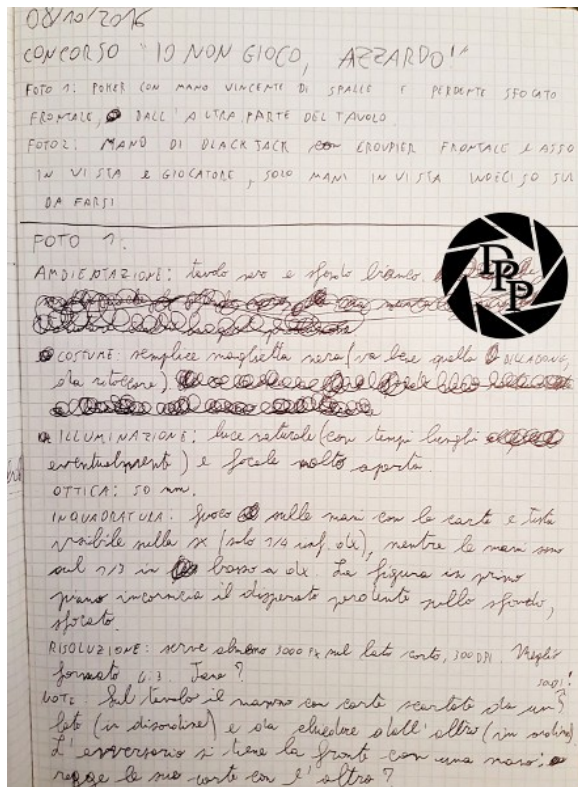 08/10/2016
CONCORSO "IO NON GIOCO, AZZARDO!"
FOTO 1: POKER CON MANO VINCENTE DI SPALLE E PERDENTE SFOCATO
FRONTALE, DALL'ALTRA PARTE DEL TAVOLO.
FOTO 2: MANO DI BLACK JACK CROUPIER FRONTALE E ASSO
IN VISTA E GIOCATORE, SOLO MANI IN VISTA INDECISO SUL
DA FARSI
FOTO 1:
DPP
AMBIENTAZIONE: tavolo nero e sfondo bianco.
COSTUME: semplice maglietta nera (va bene quella
da ritoccare)
ILLUMINAZIONE: luce naturale (con tempi lunghi
eventualmente) e focale molto aperta.
OTTICA: 50 mm.
INQUADRATURA: fuoco sulle mani con le carte e testa
visibile sulla sx (solo 1/4 inf. dx), mentre le mani sono
sul 1/3 in basso a dx. La figura in primo
piano incornicia il disperato perdente sullo sfondo,
sfocato.
RISOLUZIONE: serve almeno 3000 px sul lato corto, 300 DPI. Meglio
formato
NOTE: Sul tavolo il mazzo con carte scartate da un
lato (in disordine) e da chiedere dall'altro (in ordine)
L'avversario si tiene la fronte con una mano;
regge le sue carte con l'altra?